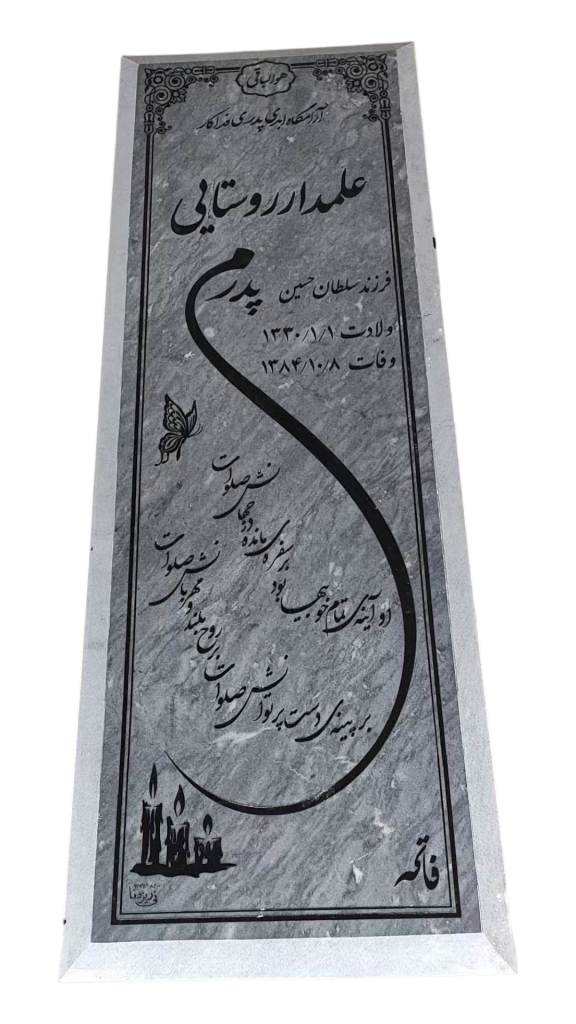 هوالباقی
آرامگاه ابدی پدری فداکار
علمدار روستایی
پدرم
فرزند سلطان حسین
ولادت ۱۳۳۰/۱/۱
وفات ۱۳۸۴/۱۰/۸
بر پینه‌ی دست پر توانش صلوات
بر روح بلند و مهربانش صلوات
او آینه‌ی تمام خوبیها بود
بر سفره‌ی مانده در جهانش صلوات
فاتحه